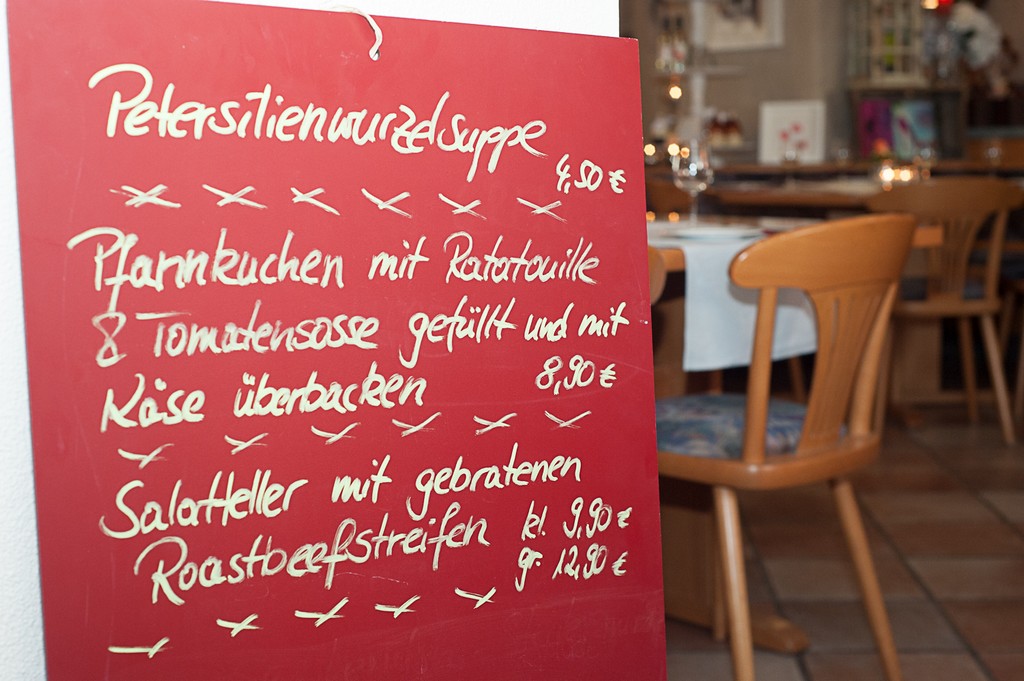 Petersilienwurzelsuppe
4,50 €
Pfannkuchen mit Ratatouille
& Tomatensosse gefüllt und mit
Käse überbacken 8,90 €
Salatteller mit gebratenen
Roastbeefstreifen kl. 9,90 €
gr. 12,90 €